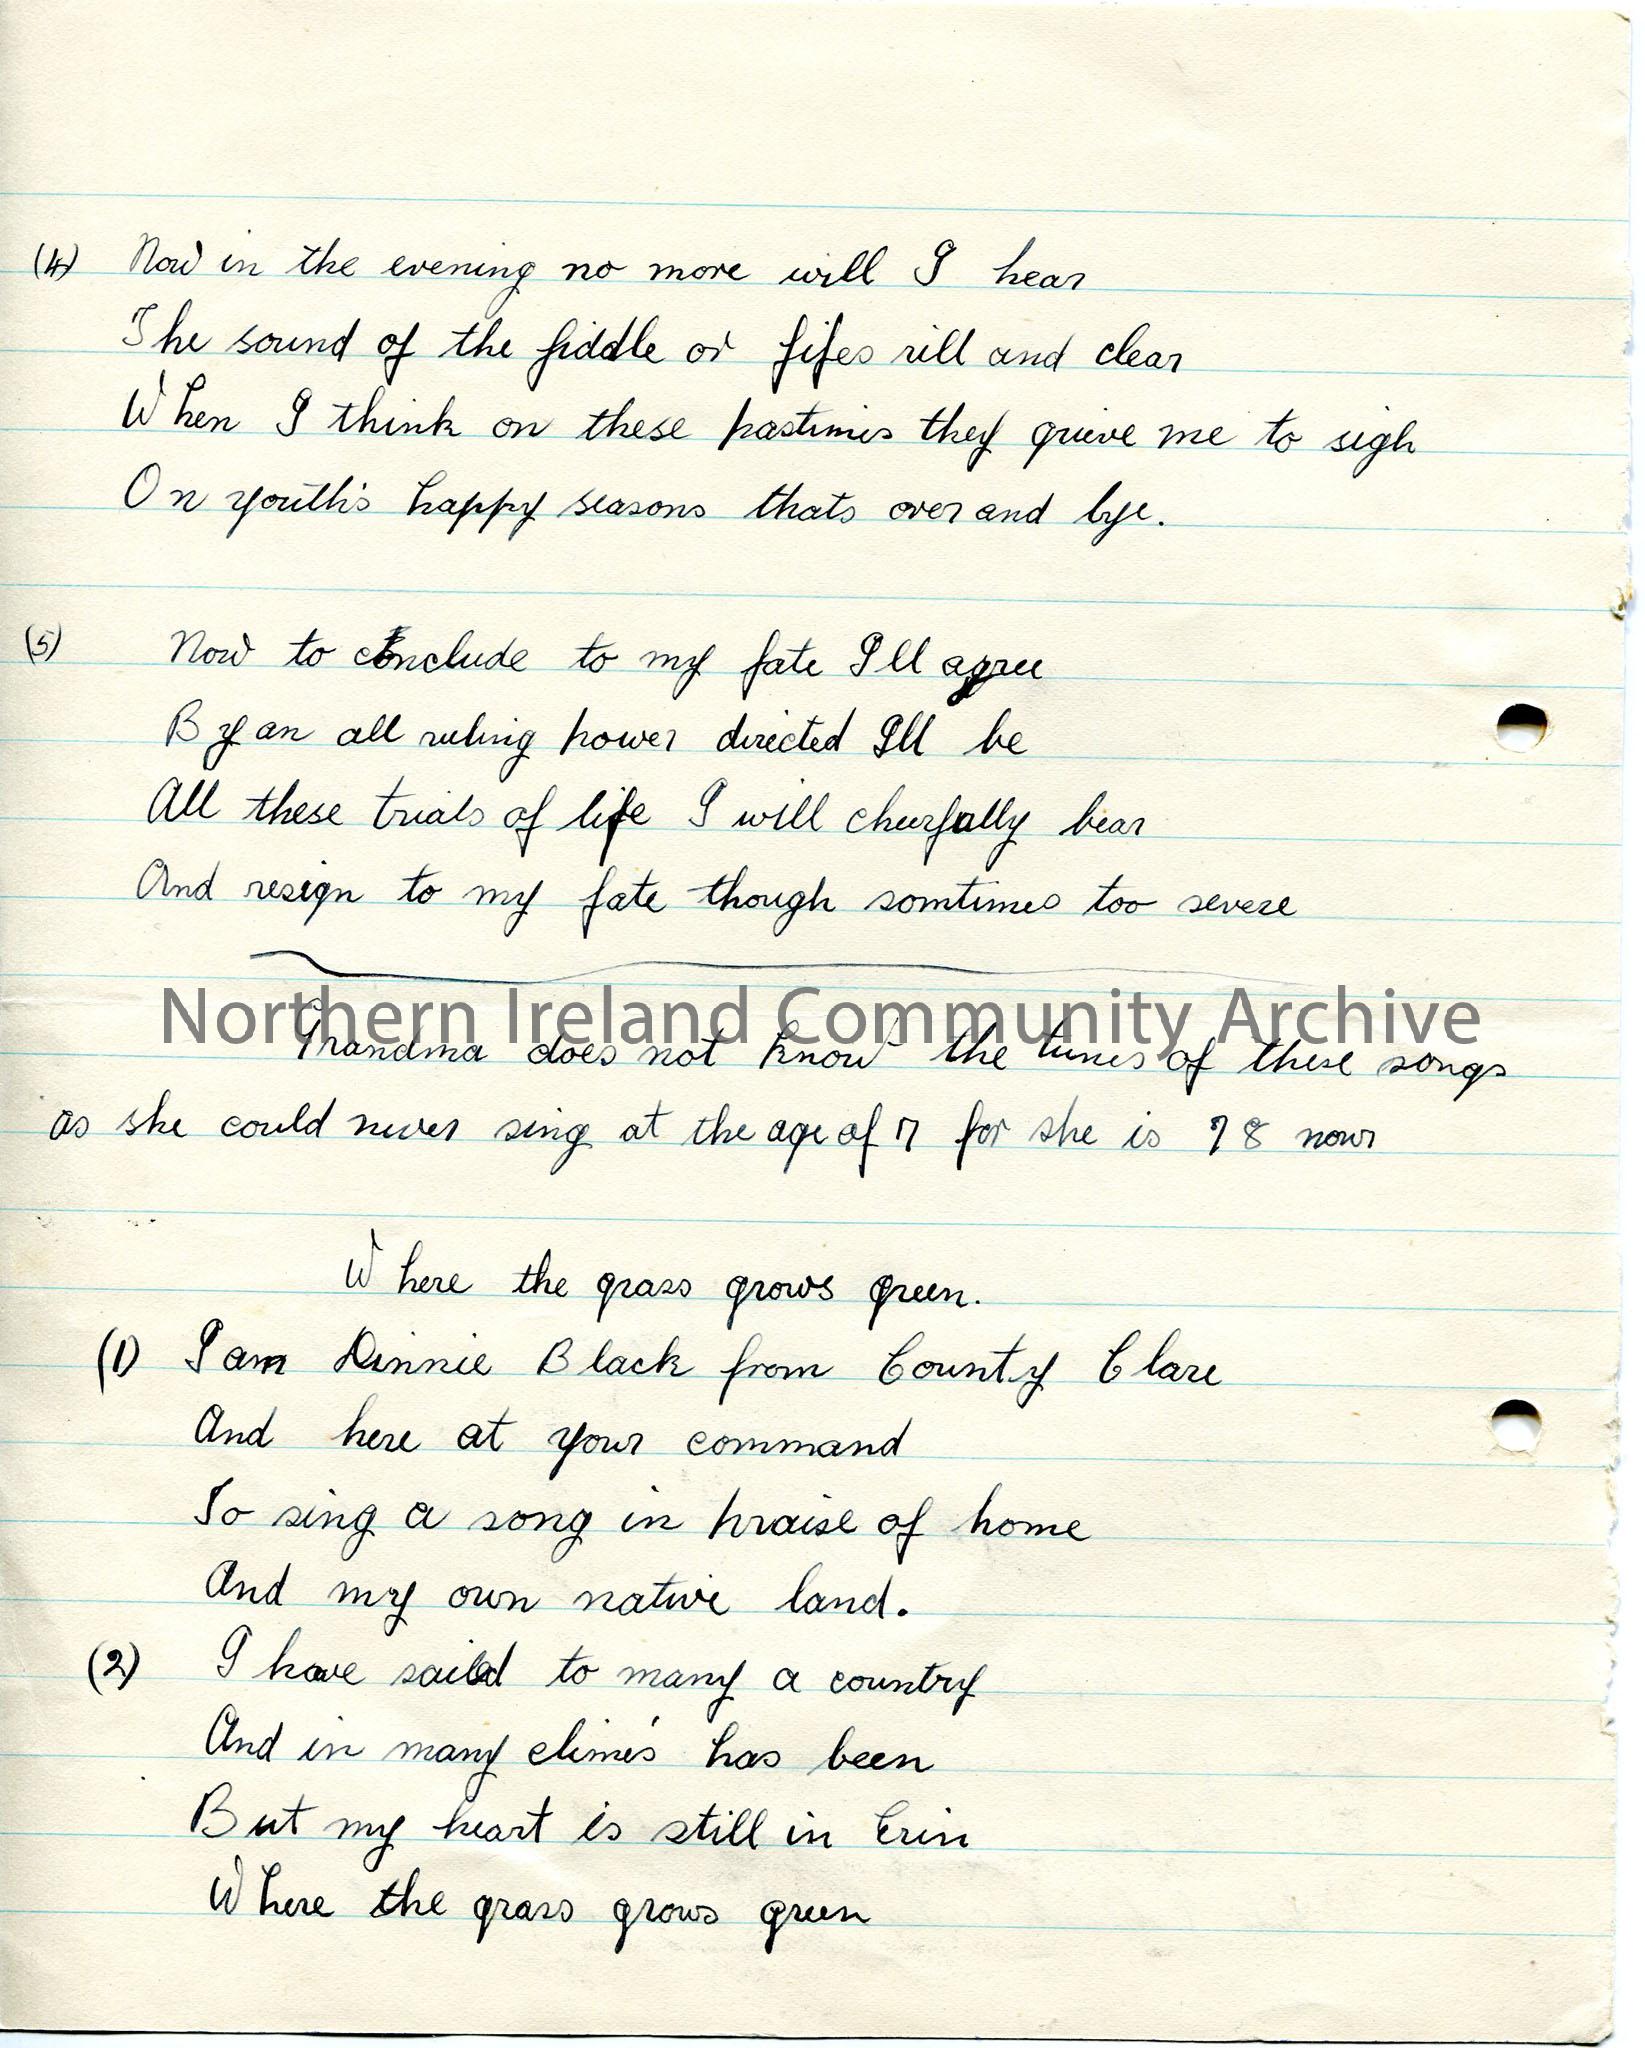 (4) Now in the evening no more will I hear
The sound of the fiddle or fifes rill and clear
When I think on these pastimes they grieve me to sigh
On youth's happy seasons thats over and bye.
(5) Now to conclude to my fate I'll agree
By an all ruling power directed I'll be
All these trials of life I will cheerfully bear
And resign to my fate though somtimes too severe
Northern Ireland Community Archive
Grandma does not know the tunes of these songs
as she could never sing at the age of 7 for she is 78 now
Where the grass grows green.
(1) I am Dinnie Black from County Clare
And here at your command
To sing a song in praise of home
And my own native land.
(2) I have sailed to many a country
And in many clime's has been
But my heart is still in Erin
Where the grass grows green